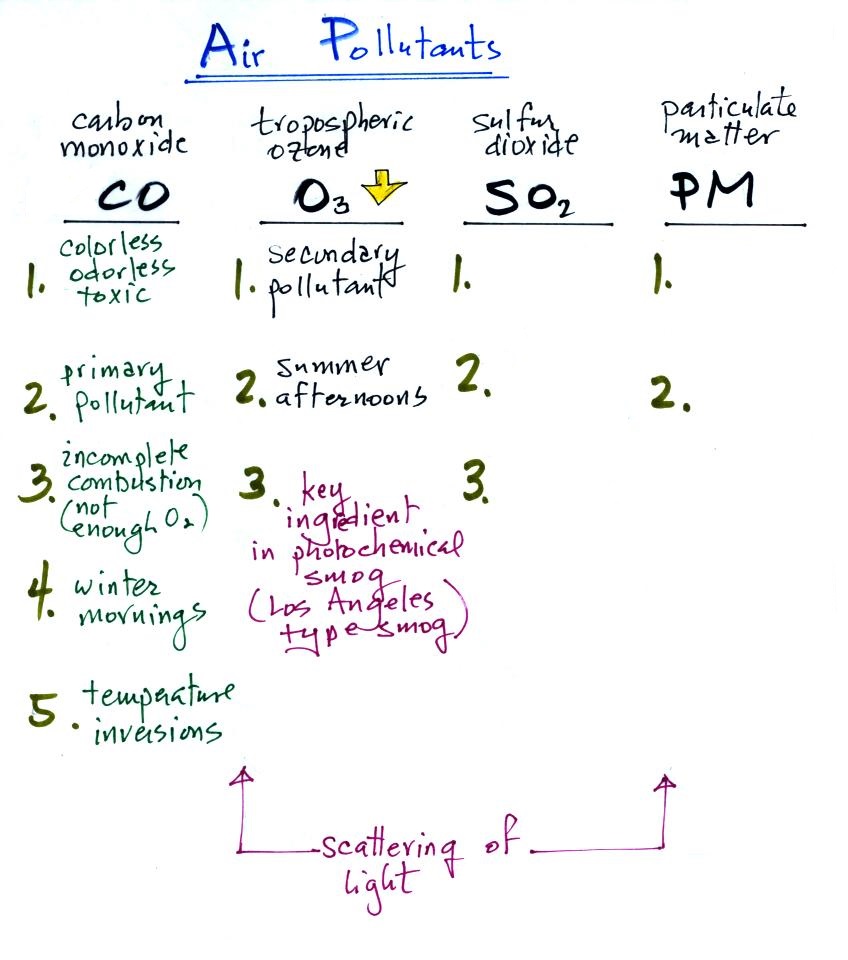 Air Pollutants
carbon
monoxide
CO
1. colorless
odorless
toxic
2. primary
pollutant
3. incomplete
combustion
(not
enough O₂)
4. winter
mornings
5. temperature
inversions
tropospheric
ozone
O₃
1. secundary
pollutant
2. summer
afternoons
3. key
ingredient
in photochemical
smog
(Los Angeles
type smog)
sulfur
dioxide
SO₂
1.
2.
3.
particulate
matter
PM
1.
2.
scattering of
light